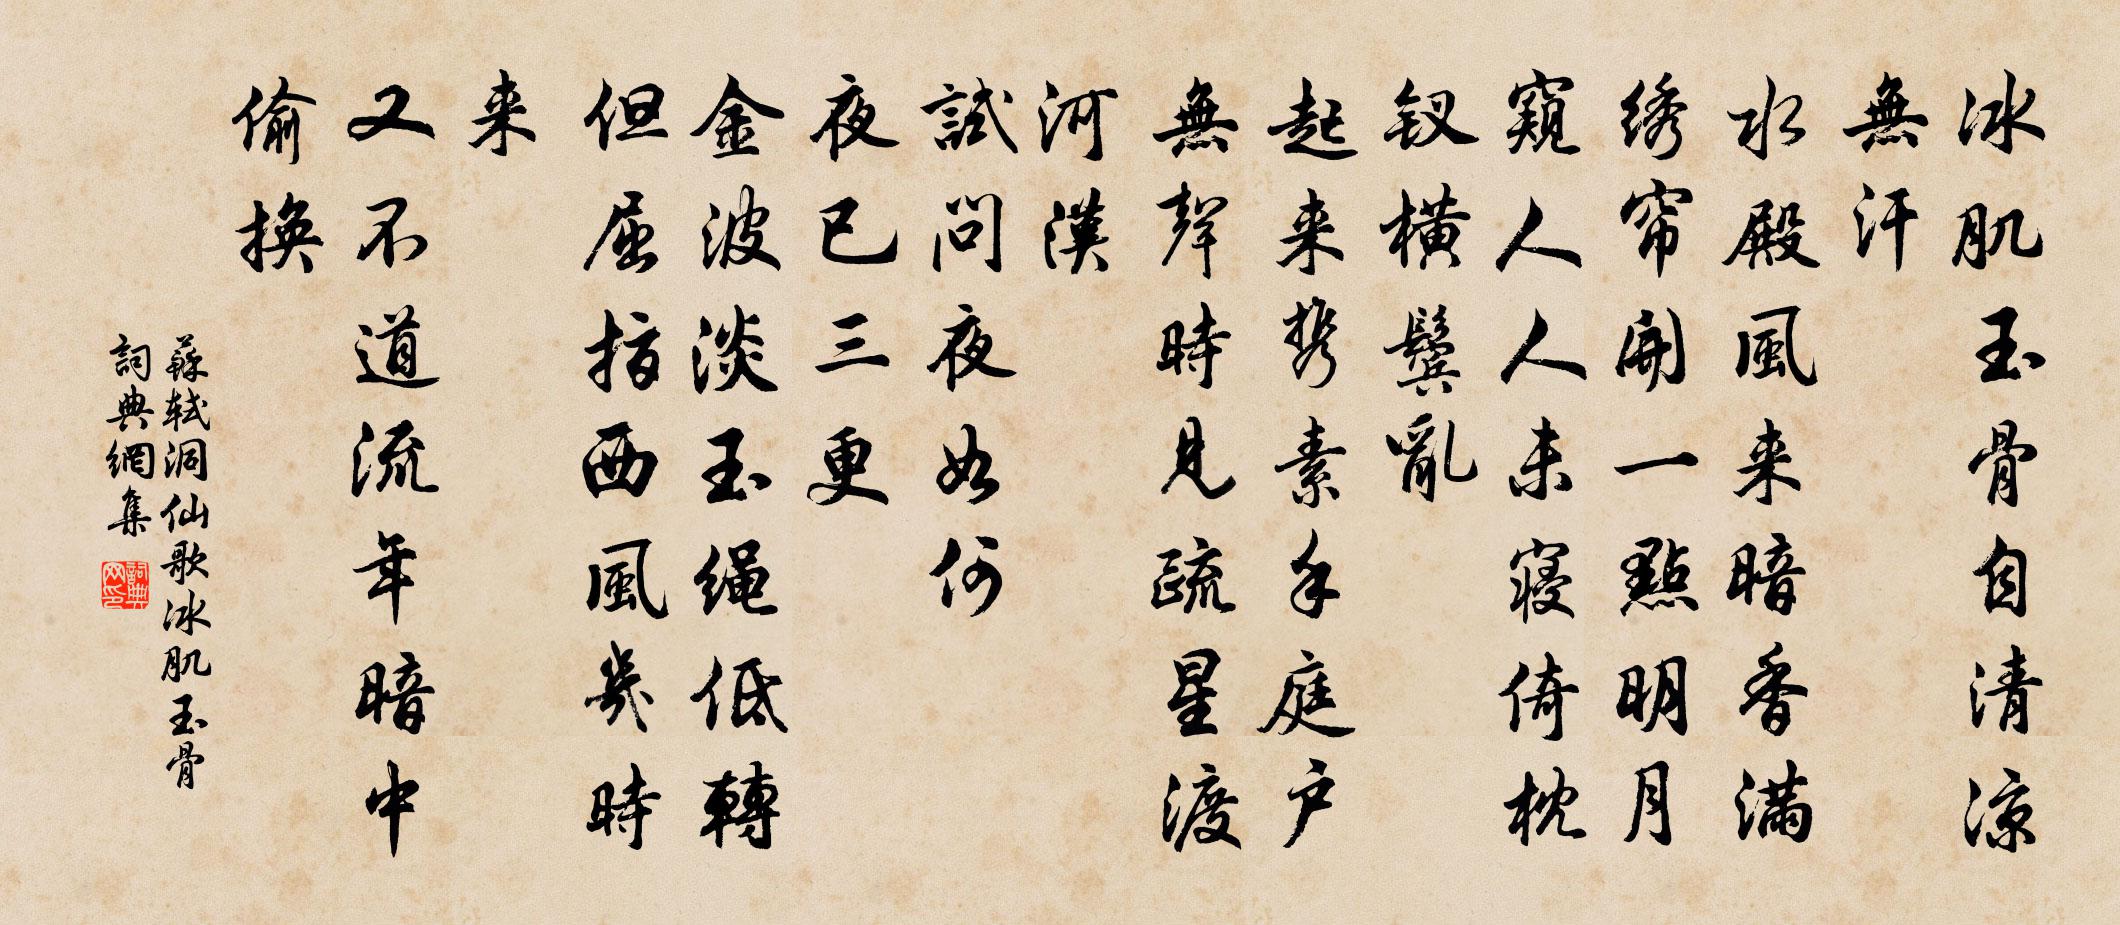 冰肌玉骨自清凉
無汗
水殿風来暗香滿
绣帘開一點明月
窺人人未寝倚枕
钗横鬓亂
起来携素手庭户
無聲時見疏星渡
河漢
試問夜如何
夜已三更
金波淡玉绳低轉
但屈指西風幾時
来
又不道流年暗中
偷换
蘇軾洞仙歌冰肌玉骨
詞典網集
詞典
网印